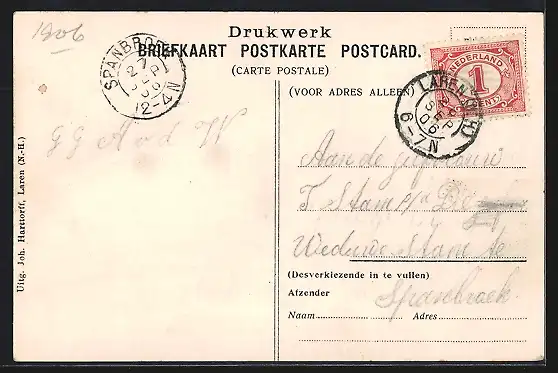 1906
Drukwerk
BRIEFKAART POSTKARTE POSTCARD.
(CARTE POSTALE)
(VOOR ADRES ALLEEN)
SPANBROEK
27 SEP 06
12-4N
NEDERLAND
1
CENT
LAREN
SEP
06
6-7N
G G A v d W
Aan de
T Stam p/a
Weduwe Stam te
Spanbroek
(Desverkiezende in te vullen)
Afzender
Naam
Adres
Uitg. Joh. Harttorff, Laren (N.-H.)